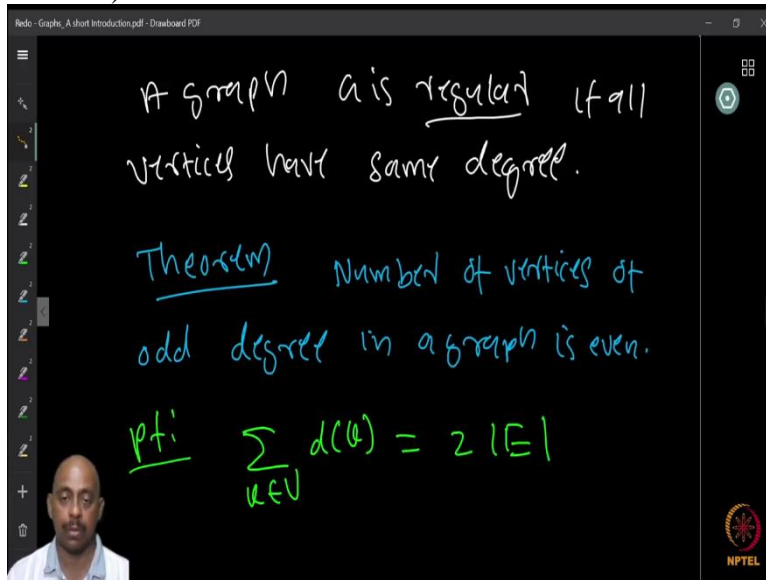 Redo - Graphs_ A short Introduction.pdf - Drawboard PDF
A graph G is regular if all
vertices have same degree.
Theorem Number of vertices of
odd degree in a graph is even.
Pf: ∑ d(v) = 2 |E|
v∈V
NPTEL